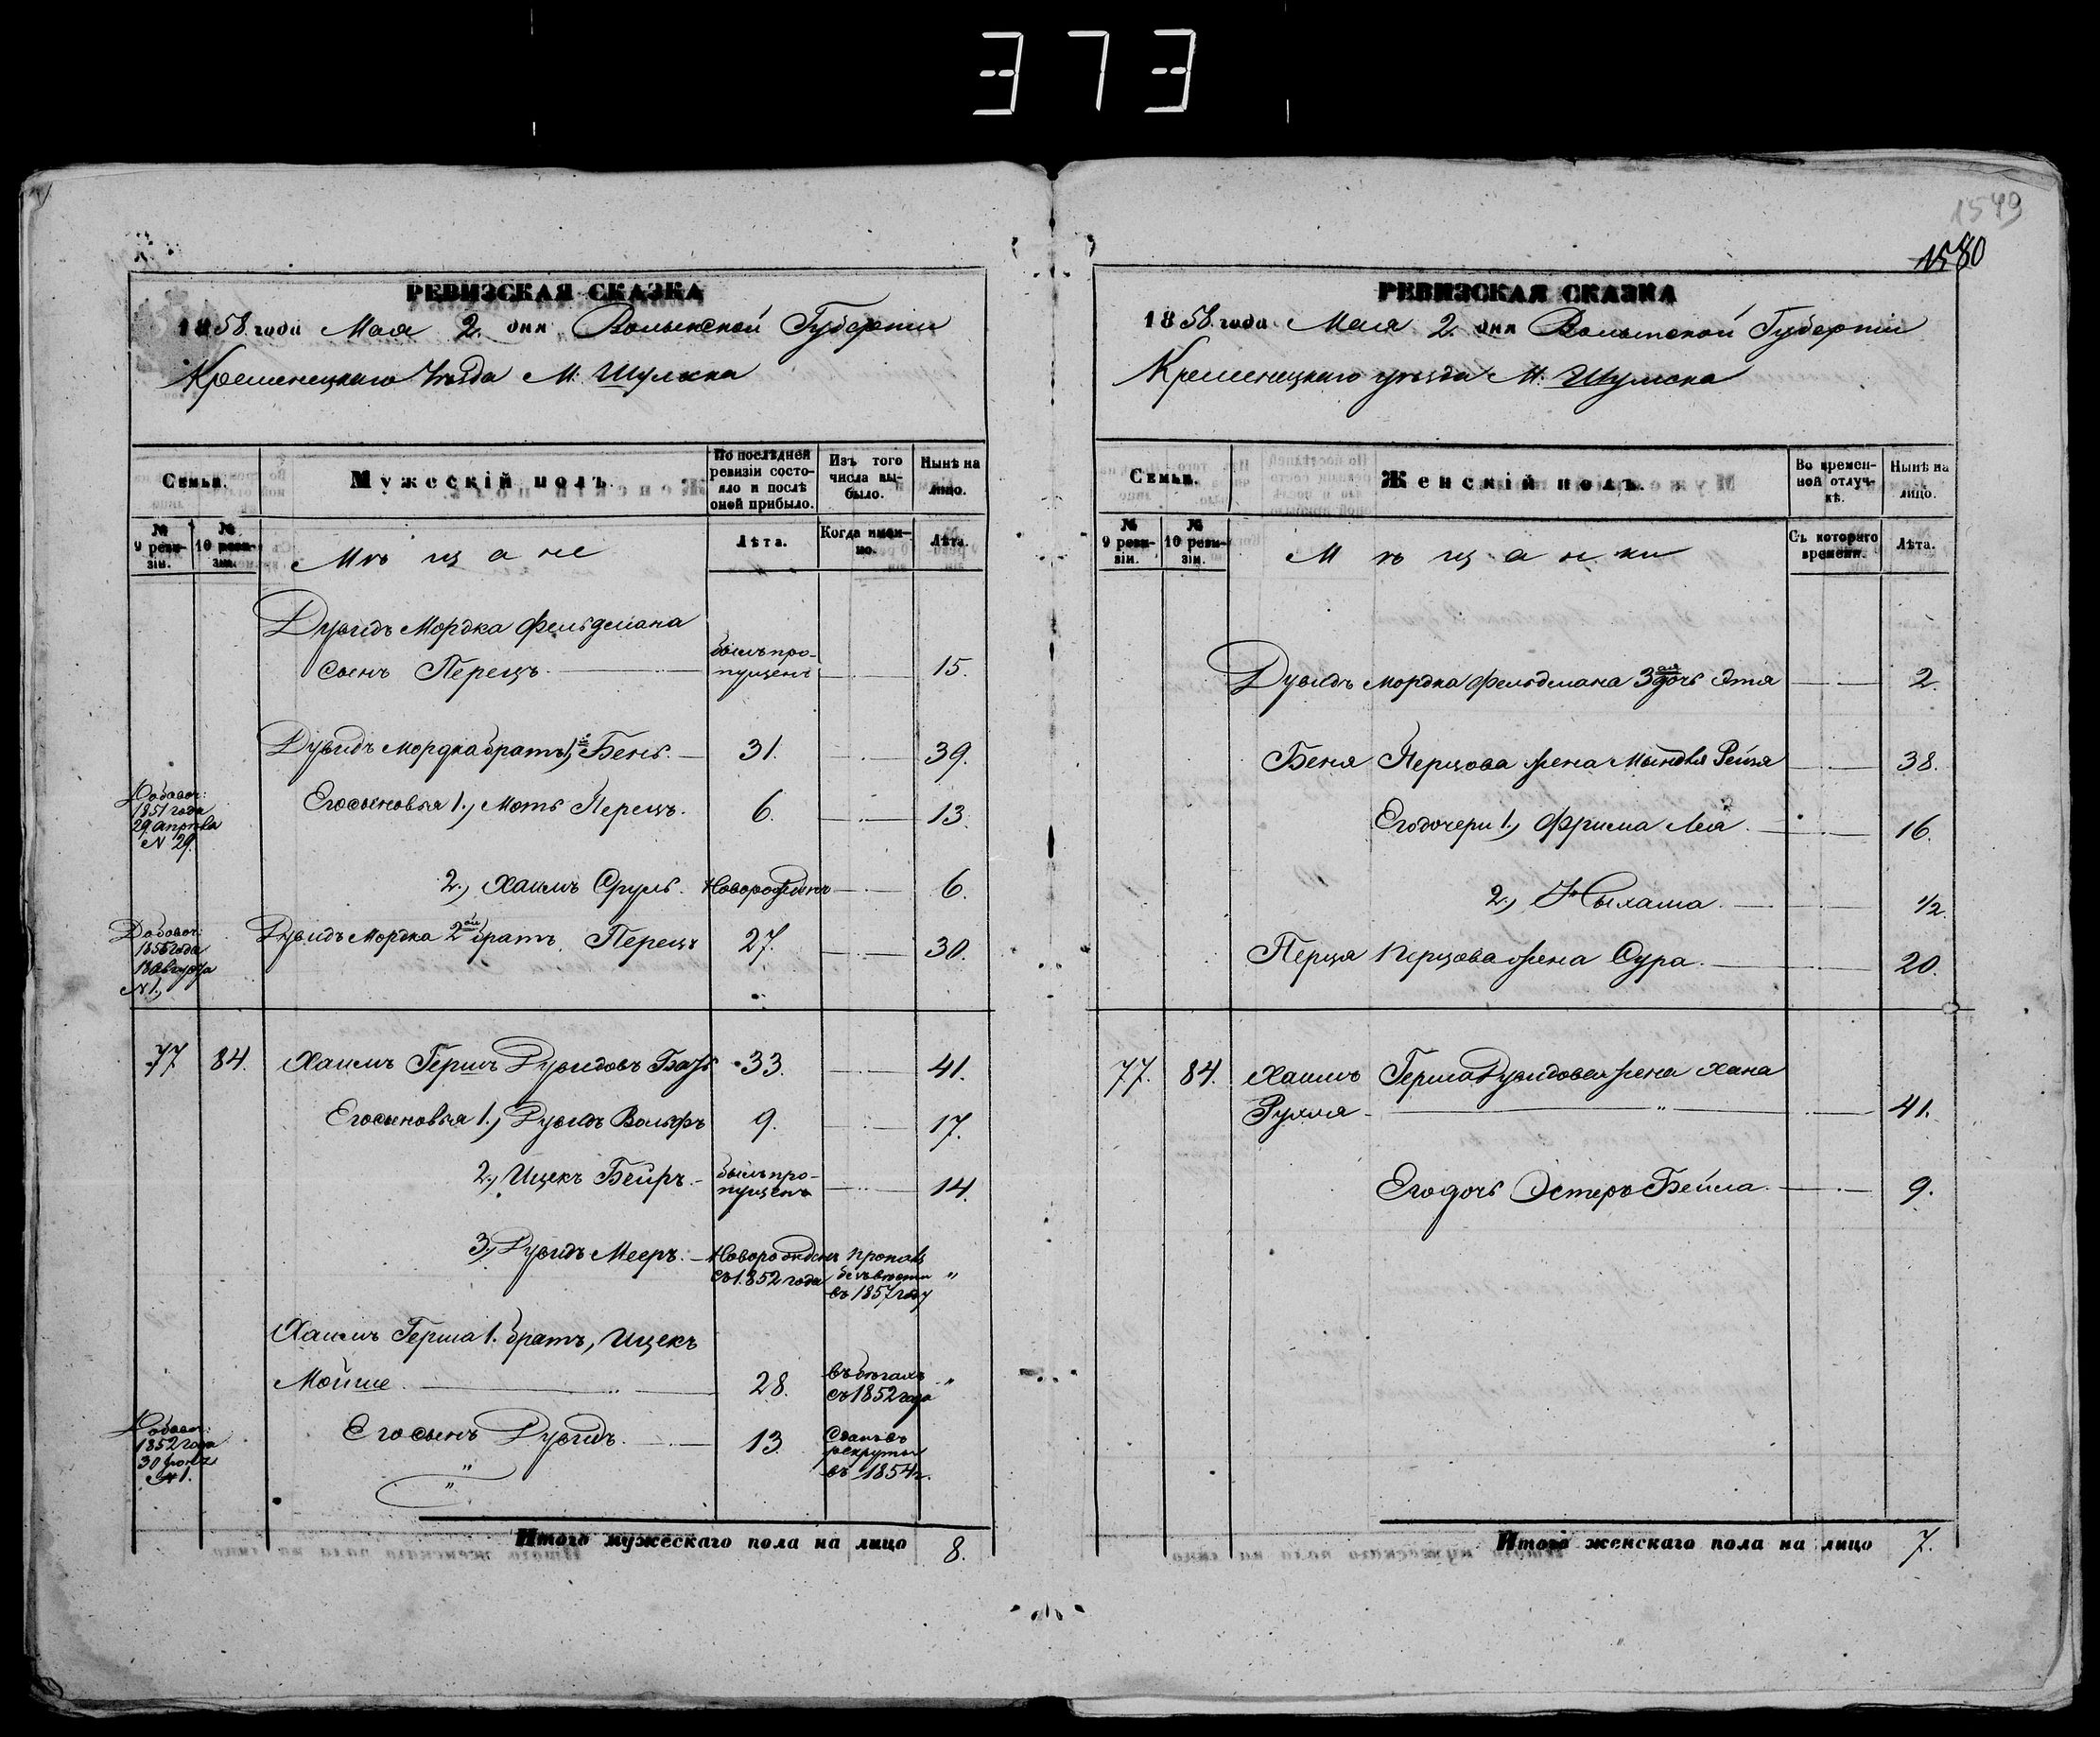 373
1549
1580
РЕВИЗСКАЯ СКАЗКА
1858 года Мая 2. дня Волынской Губерніи
Кременецкаго Уѣзда М. Шумска
Семьи.
Мужескій полъ.
По послѣдней ревизіи состояло и послѣ оной прибыло.
Изъ того числа выбыло.
Нынѣ на лицо.
№ 9 ревизіи.
№ 10 ревизіи.
Мѣщане
Лѣта.
Когда именно.
Лѣта.
Дувидъ Мордка Фельдмана
сынъ Перецъ былъ пропущенъ 15.
Дувидъ Мордка братъ 1й Бень. 31. 39.
Добавоч: 1851 года 29 Апрѣля N 29.
Его сыновья 1., Моть Перецъ. 6. 13.
2., Хаимъ Сруль. Новорожденъ 6.
Добавоч: Августа N 1.
Дувидъ Мордка 2ой братъ Перецъ 27. 30.
77 84. Хаимъ Гершъ Дувидовъ 33. 41.
Его сыновья 1., Дувидъ Вольфъ 9. 17.
2., Ицекъ Бейръ. былъ пропущенъ 14.
3., Дувидъ Мееръ. Новорожденъ съ 1852 года пропалъ безъ вѣсти въ 1857 году "
Хаимъ Герша 1. братъ, Ицекъ
Мойше 28. въ бѣгахъ съ 1852 года "
Добавоч: 1852 года 30 N 1.
Его сынъ Дувидъ. 13 Сданъ въ рекруты въ 1854 г.
Итого мужескаго пола на лицо 8.
РЕВИЗСКАЯ СКАЗКА
1858 года Мая 2. дня Волынской Губерніи
Кременецкаго уѣзда М. Шумска
Семьи.
Женскій полъ.
Во временной отлучкѣ.
Нынѣ на лицо.
№ 9 ревизіи.
№ 10 ревизіи.
Мѣщанки
Съ котораго времени.
Лѣта.
Дувидъ Мордка Фельдмана 3ая дочь Этя 2.
Беня Перцова жена Мындля Рейзя 38.
Его дочери 1., Фрима Лея 16.
2., 1/2.
Перця Перцова жена Сура. 20.
77. 84. Хаимъ Герша Дувидова жена Хана
Рухля 41.
Его дочь Эстеръ Бейла 9.
Итого женскаго пола на лицо 7.